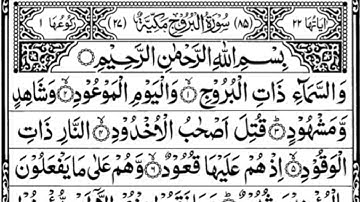 اٰیَاتُهَا ٢٢ (٨٥) سُوْرَةُ الْبُرُوْجِ مَكِّيَّةٌ (٢٧) رُكُوْعُهَا ١
بِسْمِ اللهِ الرَّحْمٰنِ الرَّحِيْمِ
وَ السَّمَآءِ ذَاتِ الْبُرُوْجِ ١ وَالْيَوْمِ الْمَوْعُوْدِ ٢ وَشَاهِدٍ
وَّمَشْهُوْدٍ ٣ قُتِلَ اَصْحٰبُ الْاُخْدُوْدِ ٤ النَّارِ ذَاتِ
الْوَقُوْدِ ٥ اِذْ هُمْ عَلَيْهَا قُعُوْدٌ ٦ وَّهُمْ عَلٰى مَا يَفْعَلُوْنَ